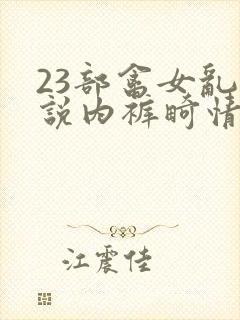 23部畲女亂
說内裤畸情
江震佳